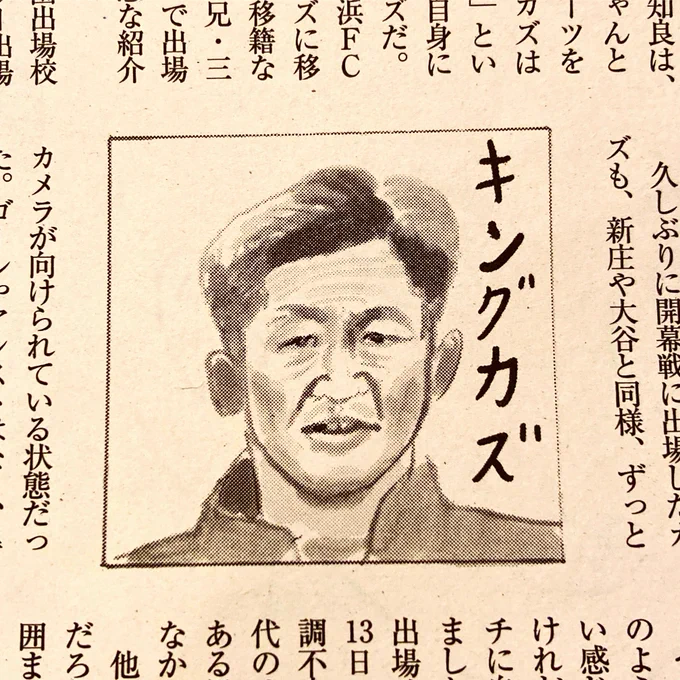 知良は、
ゃんと
ーツを
カズは
」とい
自身に
ズだ。
浜FC
ズに移
移籍な
兄・三
で出場
な紹介
出場校
出場
久しぶりに開幕戦に出場したカ
ズも、新庄や大谷と同様、ずっと
キングカズ
カメラが向けられている状態だっ
た。ゴ
のよう
い感
けれど
チに
まし
出場
13日
調不
代の
ある
なか
他
だろ
囲ま